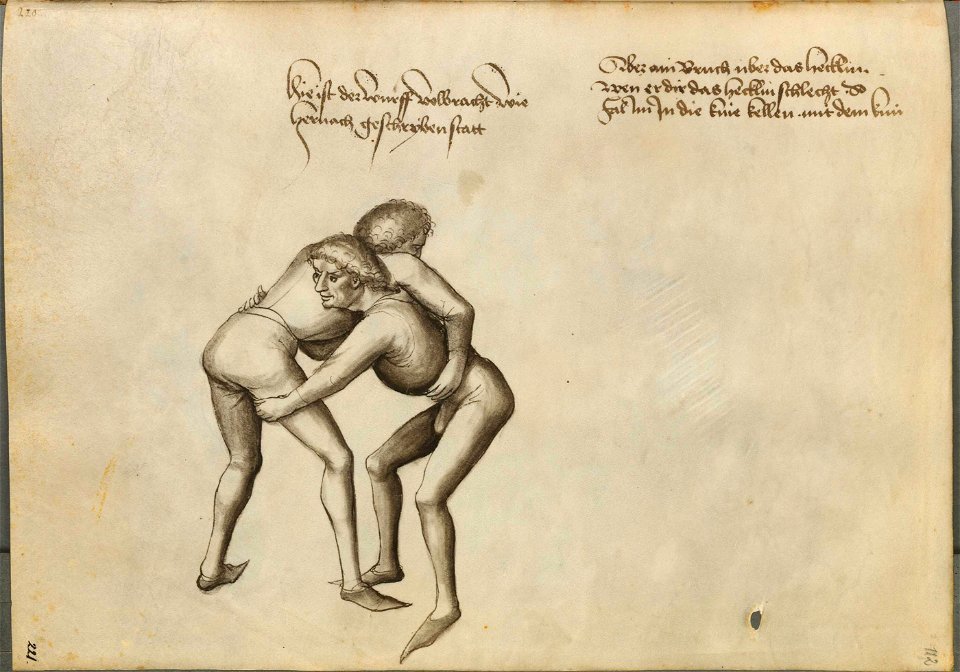 Hie ist der wurff volbracht wie
hernach geschryben statt
Aber ain bruch uber das hecklin.
wen er dir das hecklin schlecht. So
fal im In die knie kellen. mit dem knii
221.